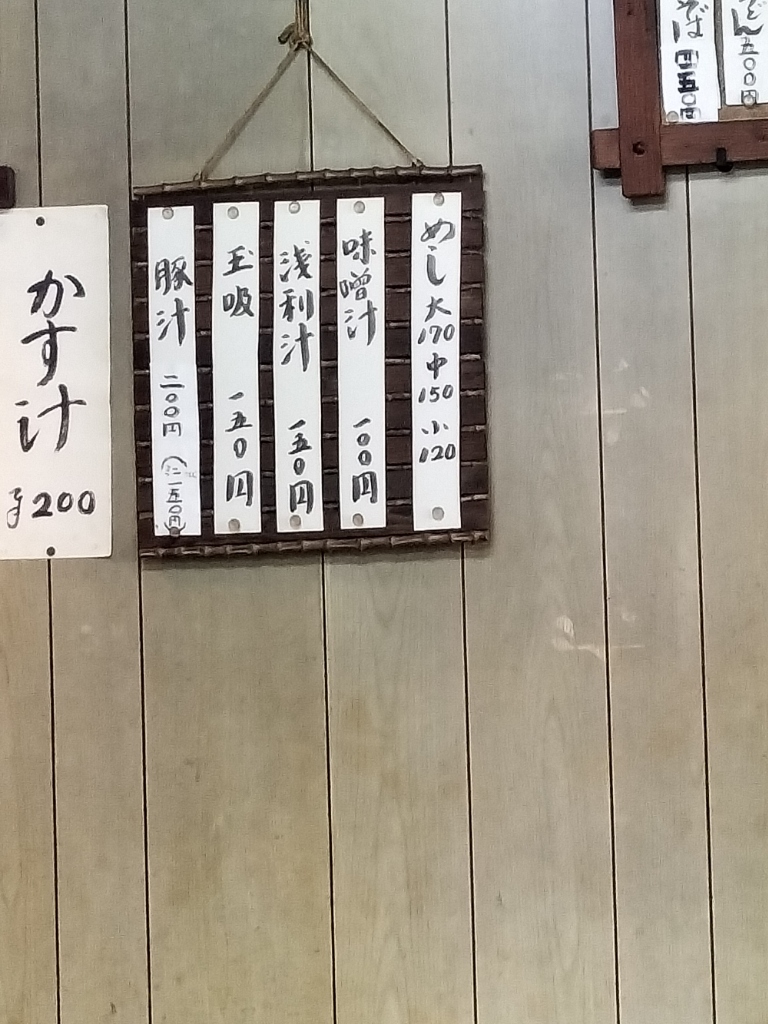 そば 四五〇円
どん 五〇〇円
めし 大170 中150 小120
味噌汁 一〇〇円
浅利汁 一五〇円
玉吸 一五〇円
豚汁 二〇〇円 (ミニ一五〇円)
かす汁 ¥200